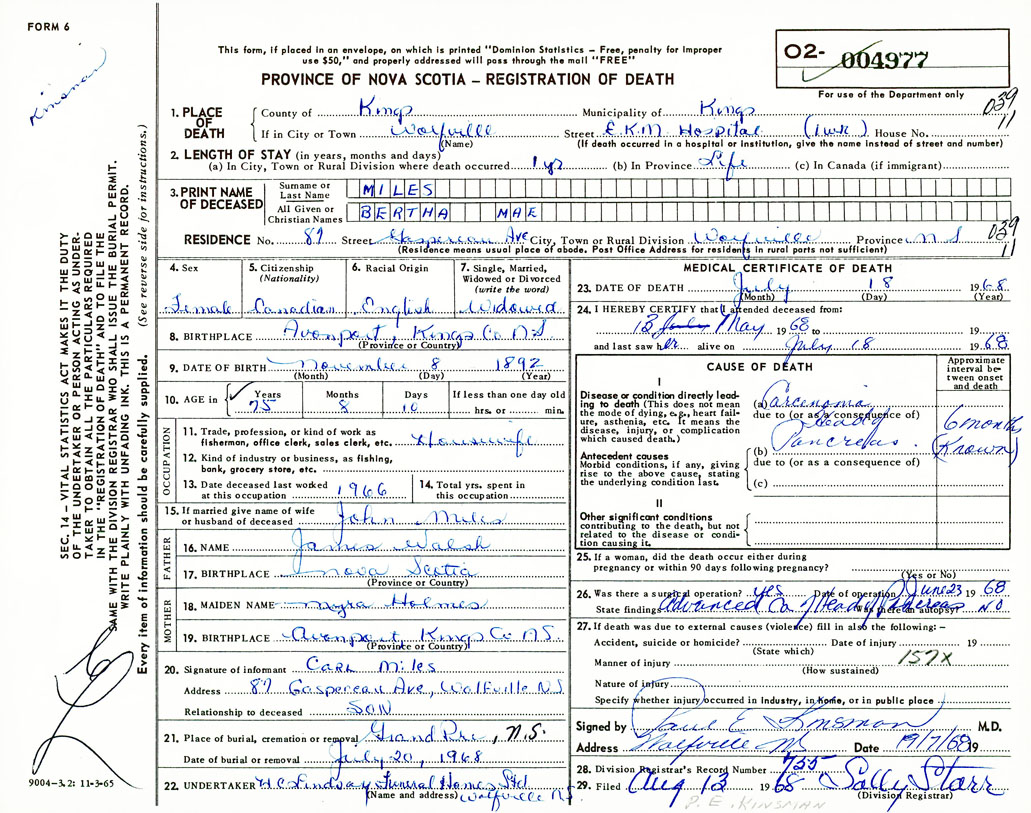 FORM 6
Kinsman
This form, if placed in an envelope, on which is printed "Dominion Statistics – Free, penalty for improper
use $50," and properly addressed will pass through the mail "FREE"
PROVINCE OF NOVA SCOTIA – REGISTRATION OF DEATH
02- 004977
For use of the Department only
039
11
1. PLACE OF DEATH
County of Kings Municipality of Kings
If in City or Town Wolfville Street E.K.M. Hospital House No.
(Name) (If death occurred in a hospital or institution, give the name instead of street and number)
2. LENGTH OF STAY (in years, months and days)
(a) In City, Town or Rural Division where death occurred 1 yr (b) In Province Life (c) In Canada (if immigrant)
3. PRINT NAME OF DECEASED
Surname or Last Name MILES
All Given or Christian Names BERTHA MAE
RESIDENCE No. 87 Street Gaspereau Ave City, Town or Rural Division Wolfville Province N S
039
11
(Residence means usual place of abode. Post Office Address for residents in rural parts not sufficient)
4. Sex 5. Citizenship (Nationality) 6. Racial Origin 7. Single, Married, Widowed or Divorced (write the word)
Female Canadian English Widowed
8. BIRTHPLACE Avonport, Kings Co N.S
(Province or Country)
9. DATE OF BIRTH November 8 1892
(Month) (Day) (Year)
10. AGE in Years Months Days If less than one day old
75 8 10 hrs. or min.
OCCUPATION
11. Trade, profession, or kind of work as
fisherman, office clerk, sales clerk, etc. Housewife
12. Kind of industry or business, as fishing,
bank, grocery store, etc.
13. Date deceased last worked at this occupation 1966 14. Total yrs. spent in this occupation
15. If married give name of wife
or husband of deceased John Miles
FATHER
16. NAME James Walsh
17. BIRTHPLACE Nova Scotia
(Province or Country)
MOTHER
18. MAIDEN NAME Myra Holmes
19. BIRTHPLACE Avonport Kings Co N.S.
(Province or Country)
20. Signature of informant Carl Miles
Address 87 Gaspereau Ave, Wolfville N.S
Relationship to deceased SON
21. Place of burial, cremation or removal Grand Pre, N.S.
Date of burial or removal July 20, 1968
22. UNDERTAKER Funeral Homes Ltd
(Name and address) Wolfville N.S
MEDICAL CERTIFICATE OF DEATH
23. DATE OF DEATH July 18 1968
(Month) (Day) (Year)
24. I HEREBY CERTIFY that I attended deceased from:
13 July May 1968 to 19
and last saw her alive on July 18 1968
CAUSE OF DEATH
Approximate interval between onset and death
I
Disease or condition directly leading
to death (This does not mean
the mode of dying, e.g., heart failure,
asthenia, etc. It means the
disease, injury, or complication
which caused death.)
(a) Carcenoma
due to (or as a consequence of)
Head of
Pancreas.
6 months
(Known)
Antecedent causes
Morbid conditions, if any, giving
rise to the above cause, stating
the underlying condition last.
(b)
due to (or as a consequence of)
(c)
II
Other significant conditions
contributing to the death, but not
related to the disease or condition
causing it.
25. If a woman, did the death occur either during
pregnancy or within 90 days following pregnancy?
(Yes or No)
26. Was there a surgical operation? yes Date of operation June 23 1968
State findings Advanced Ca of Head of Pancreas Was there an autopsy? NO
27. If death was due to external causes (violence) fill in also the following: –
Accident, suicide or homicide? Date of injury 19
(State which)
Manner of injury 157X
(How sustained)
Nature of injury
Specify whether injury occurred in Industry, in home, or in public place
Signed by Paul E Kinsman M.D.
Address Wolfville NS Date 19/7/68 19
28. Division Registrar's Record Number 755
29. Filed Aug 13 1968 Sally Starr
(Division Registrar)
P. E. KINSMAN
SEC. 14 – VITAL STATISTICS ACT MAKES IT THE DUTY
OF THE UNDERTAKER OR PERSON ACTING AS UNDERTAKER
TO OBTAIN ALL THE PARTICULARS REQUIRED
IN THE "REGISTRATION OF DEATH" AND TO FILE THE
SAME WITH THE DIVISION REGISTRAR WHO SHALL ISSUE THE BURIAL PERMIT.
WRITE PLAINLY WITH UNFADING INK. THIS IS A PERMANENT RECORD.
Every item of information should be carefully supplied. (See reverse side for instructions.)
9004–3.2: 11-3-65